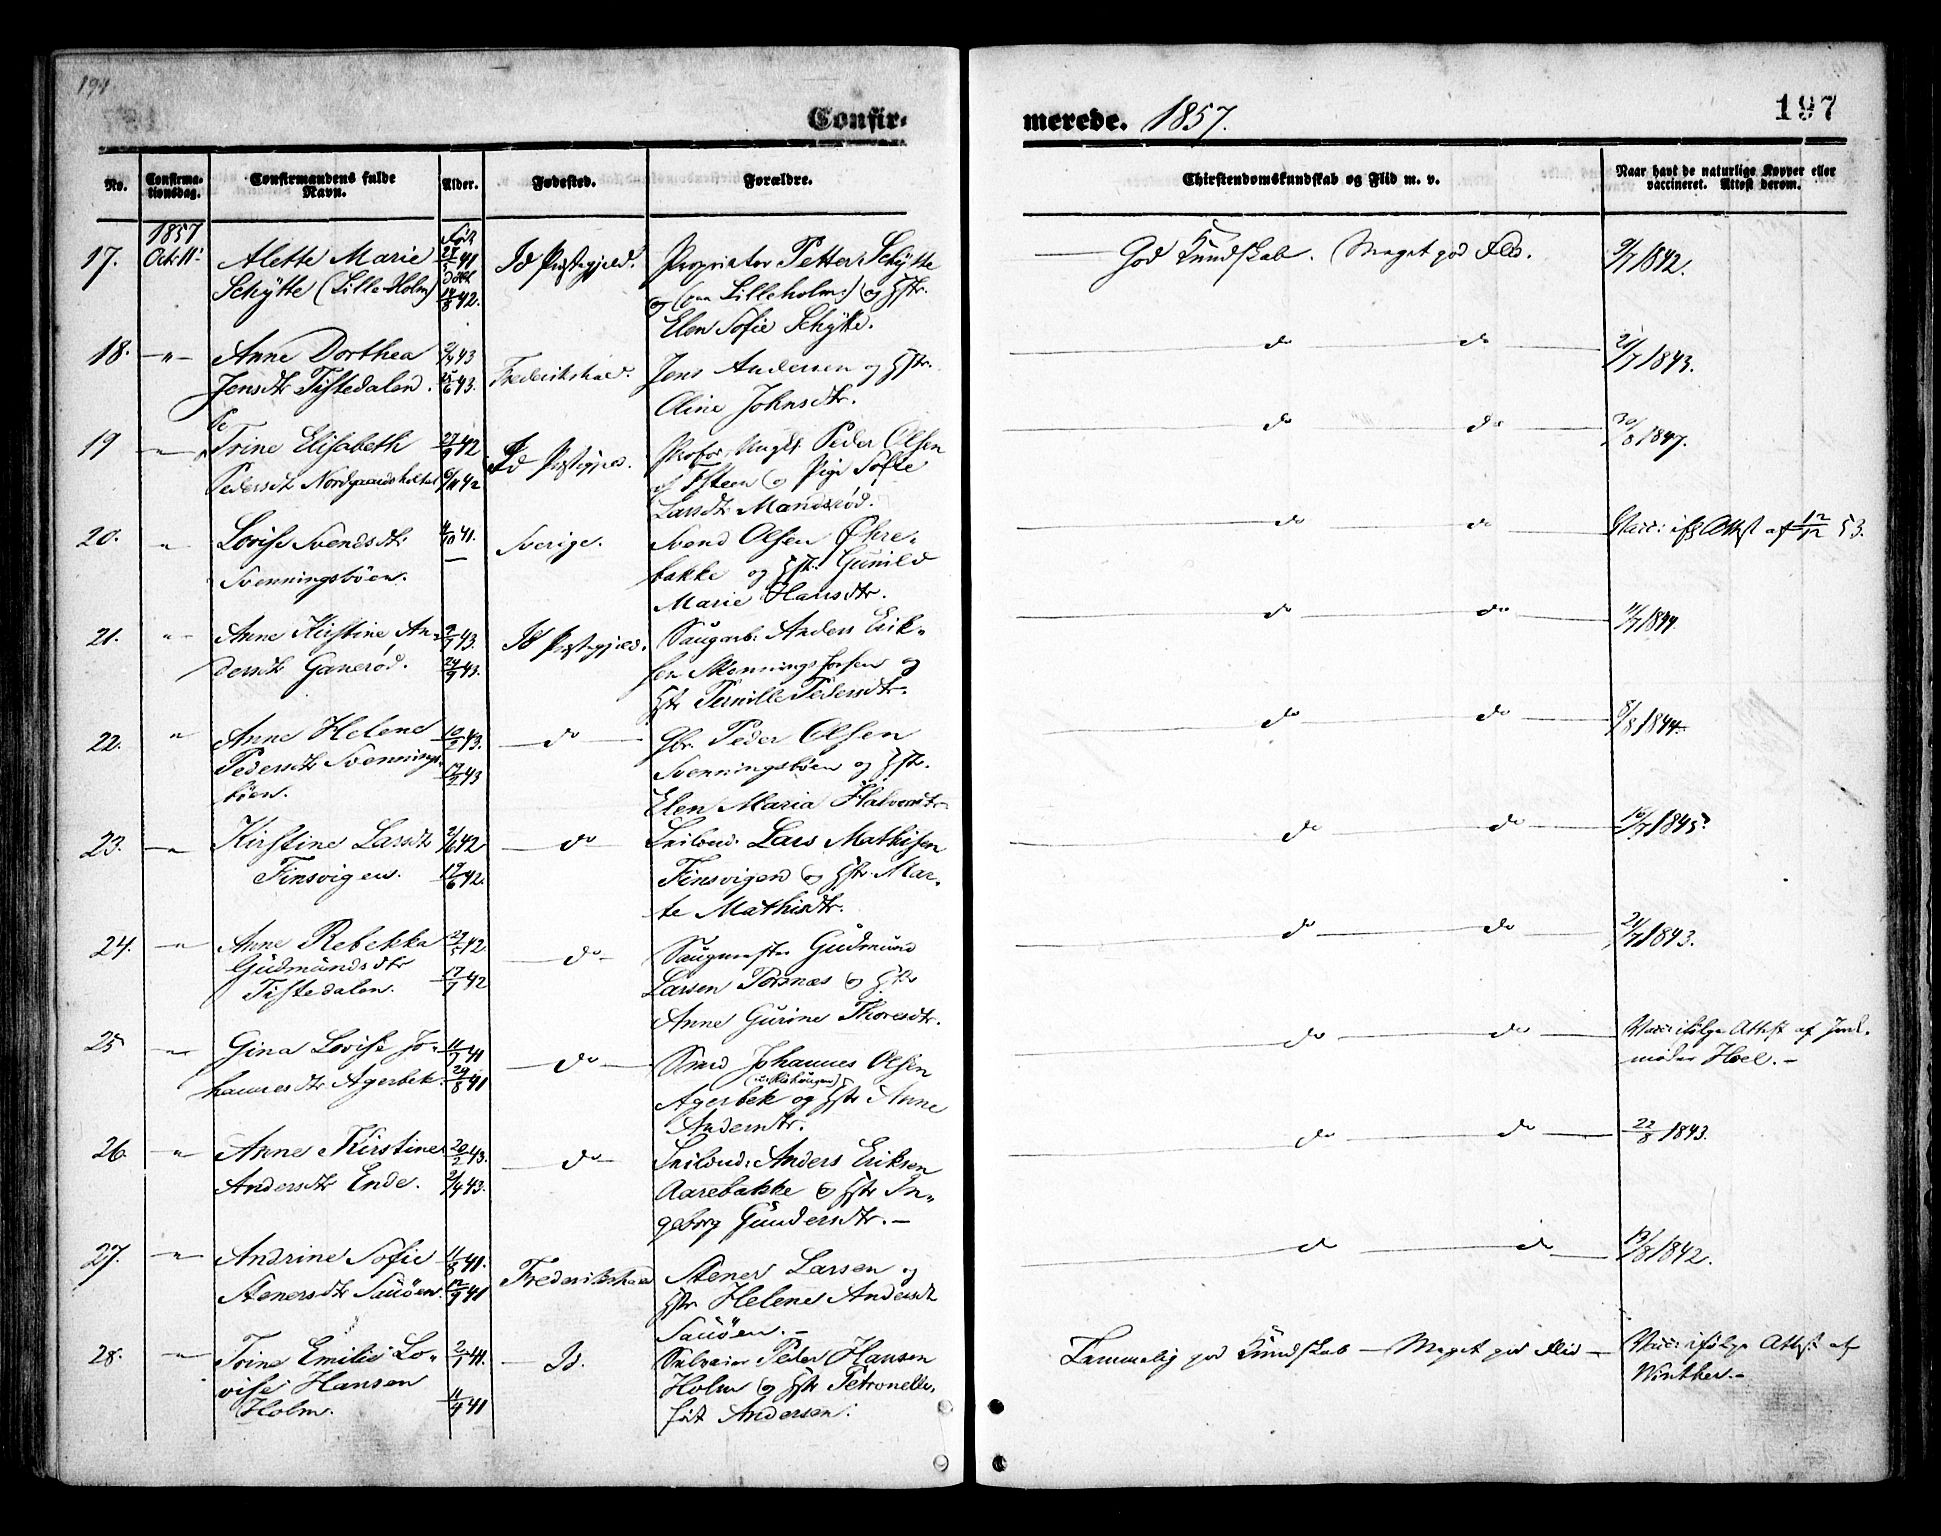 191
Confir-
merede. 1857.
197
No.
Confirma-
tionsdag.
Confirmandens fulde
Navn.
Alder.
Fødested.
Forældre.
Chirstendomskundskab og Flid m. v.
Naar havt de naturlige Kopper eller
vaccineret. Attest derom.
1857
17. Oct. 11
Alette Marie
Schÿtte (Lille Holm)
Født
27/5 41
døbt
14/8 42.
Id Prstegjeld.
Proprietær Petter Schÿtte
og (paa Lilleholm) og Hstr.
Elen Sofie Schÿtte.
God Kundskab. Meget god Flid.
9/7 1842.
18. "
Anne Dorthea
Jensdtr Tistedalen.
2/4 43
25/6 43.
Frederikshald.
Jens Andersen og Hstr.
Oline Johnsdtr.
do do
21/7 1843.
19 "
Trine Elisabeth
Pedersdtr Nordgaardsholtet
27/9 42
6/11 42
Id Prstgjæl.
Profor. Ungk. Peder Olsen
af Isteen og Pige Sofie
Larsdtr Mansrød.
do do
30/8 1847.
20. "
Lovise Svendsdtr
Svenningsbøen.
4/10 41.
Sverige.
Svend Olsen Økre-
bakke og Hstr. Gunild
Marie Hansdtr.
do do
Vacc: ifg Attest af 12/12 53.
21. "
Anne Kirstine An-
dersdtr Ganerød.
2/7 43.
24/9 43.
Id Prstegjeld.
Saugarb. Anders Erik-
sen Svenningsforsen og
Hstr Pernille Pedersdtr.
do do
11/7 1844.
22. "
Anne Helene
Pedersdtr Svennings-
bøen.
10/2 43.
17/2 43
do
Gbr. Peder Olsen
Svenningsbøen og Hstr.
Elen Maria Halvorsdtr
do do
8/8 1844.
23. "
Kirstine Larsdtr
Finsvigen.
2/6 42
19/6 42.
do
Leilænd. Lars Mathisen
Finsvigen og Hstr Mar-
te Mathisdtr.
do do
16/7 1845.
24. "
Anne Rebekka
Gudmundsdtr
Tistedalen.
29/5 42
17/7 42
do
Saugmester Gudmund
Larsen Torsnæs og Hstr
Anne Gurine Thoresdtr.
do do
21/7 1843.
25 "
Gina Lovise Jo-
hannesdtr Agerbek.
11/7 41
29/8 41
do
Smed Johannes Olsen
Agerbek og Hstr Anne
Andersdtr.
do do
Vacc: ifølge Attest af Jord-
moder Hoel.-
26 "
Anne Kirstine
Andersdtr Ende.
20/2 43.
2/4 43.
do
Leilænd: Anders Eriksen
Aarebakke og Hstr In-
geborg Gundersdtr.-
do do
22/8 1843.
27. "
Andrine Sofie
Stenersdtr Sauøen.
11/8 41.
12/9 41
Frederikshald
Stener Larsen og
Hstr Helene Andersdt
Sauøen.-
do do
19/8 1842.
28. "
Trine Emilie Lo-
vise Hansen
Holm.
2/1 41.
11/4 41
Id.
Peder Hansen
Holm og Hstr Petronelle
født Andersen.
Temmelig god Kundskab - Meget god Flid -
Vacc: ifølge Attest af
Winther.-